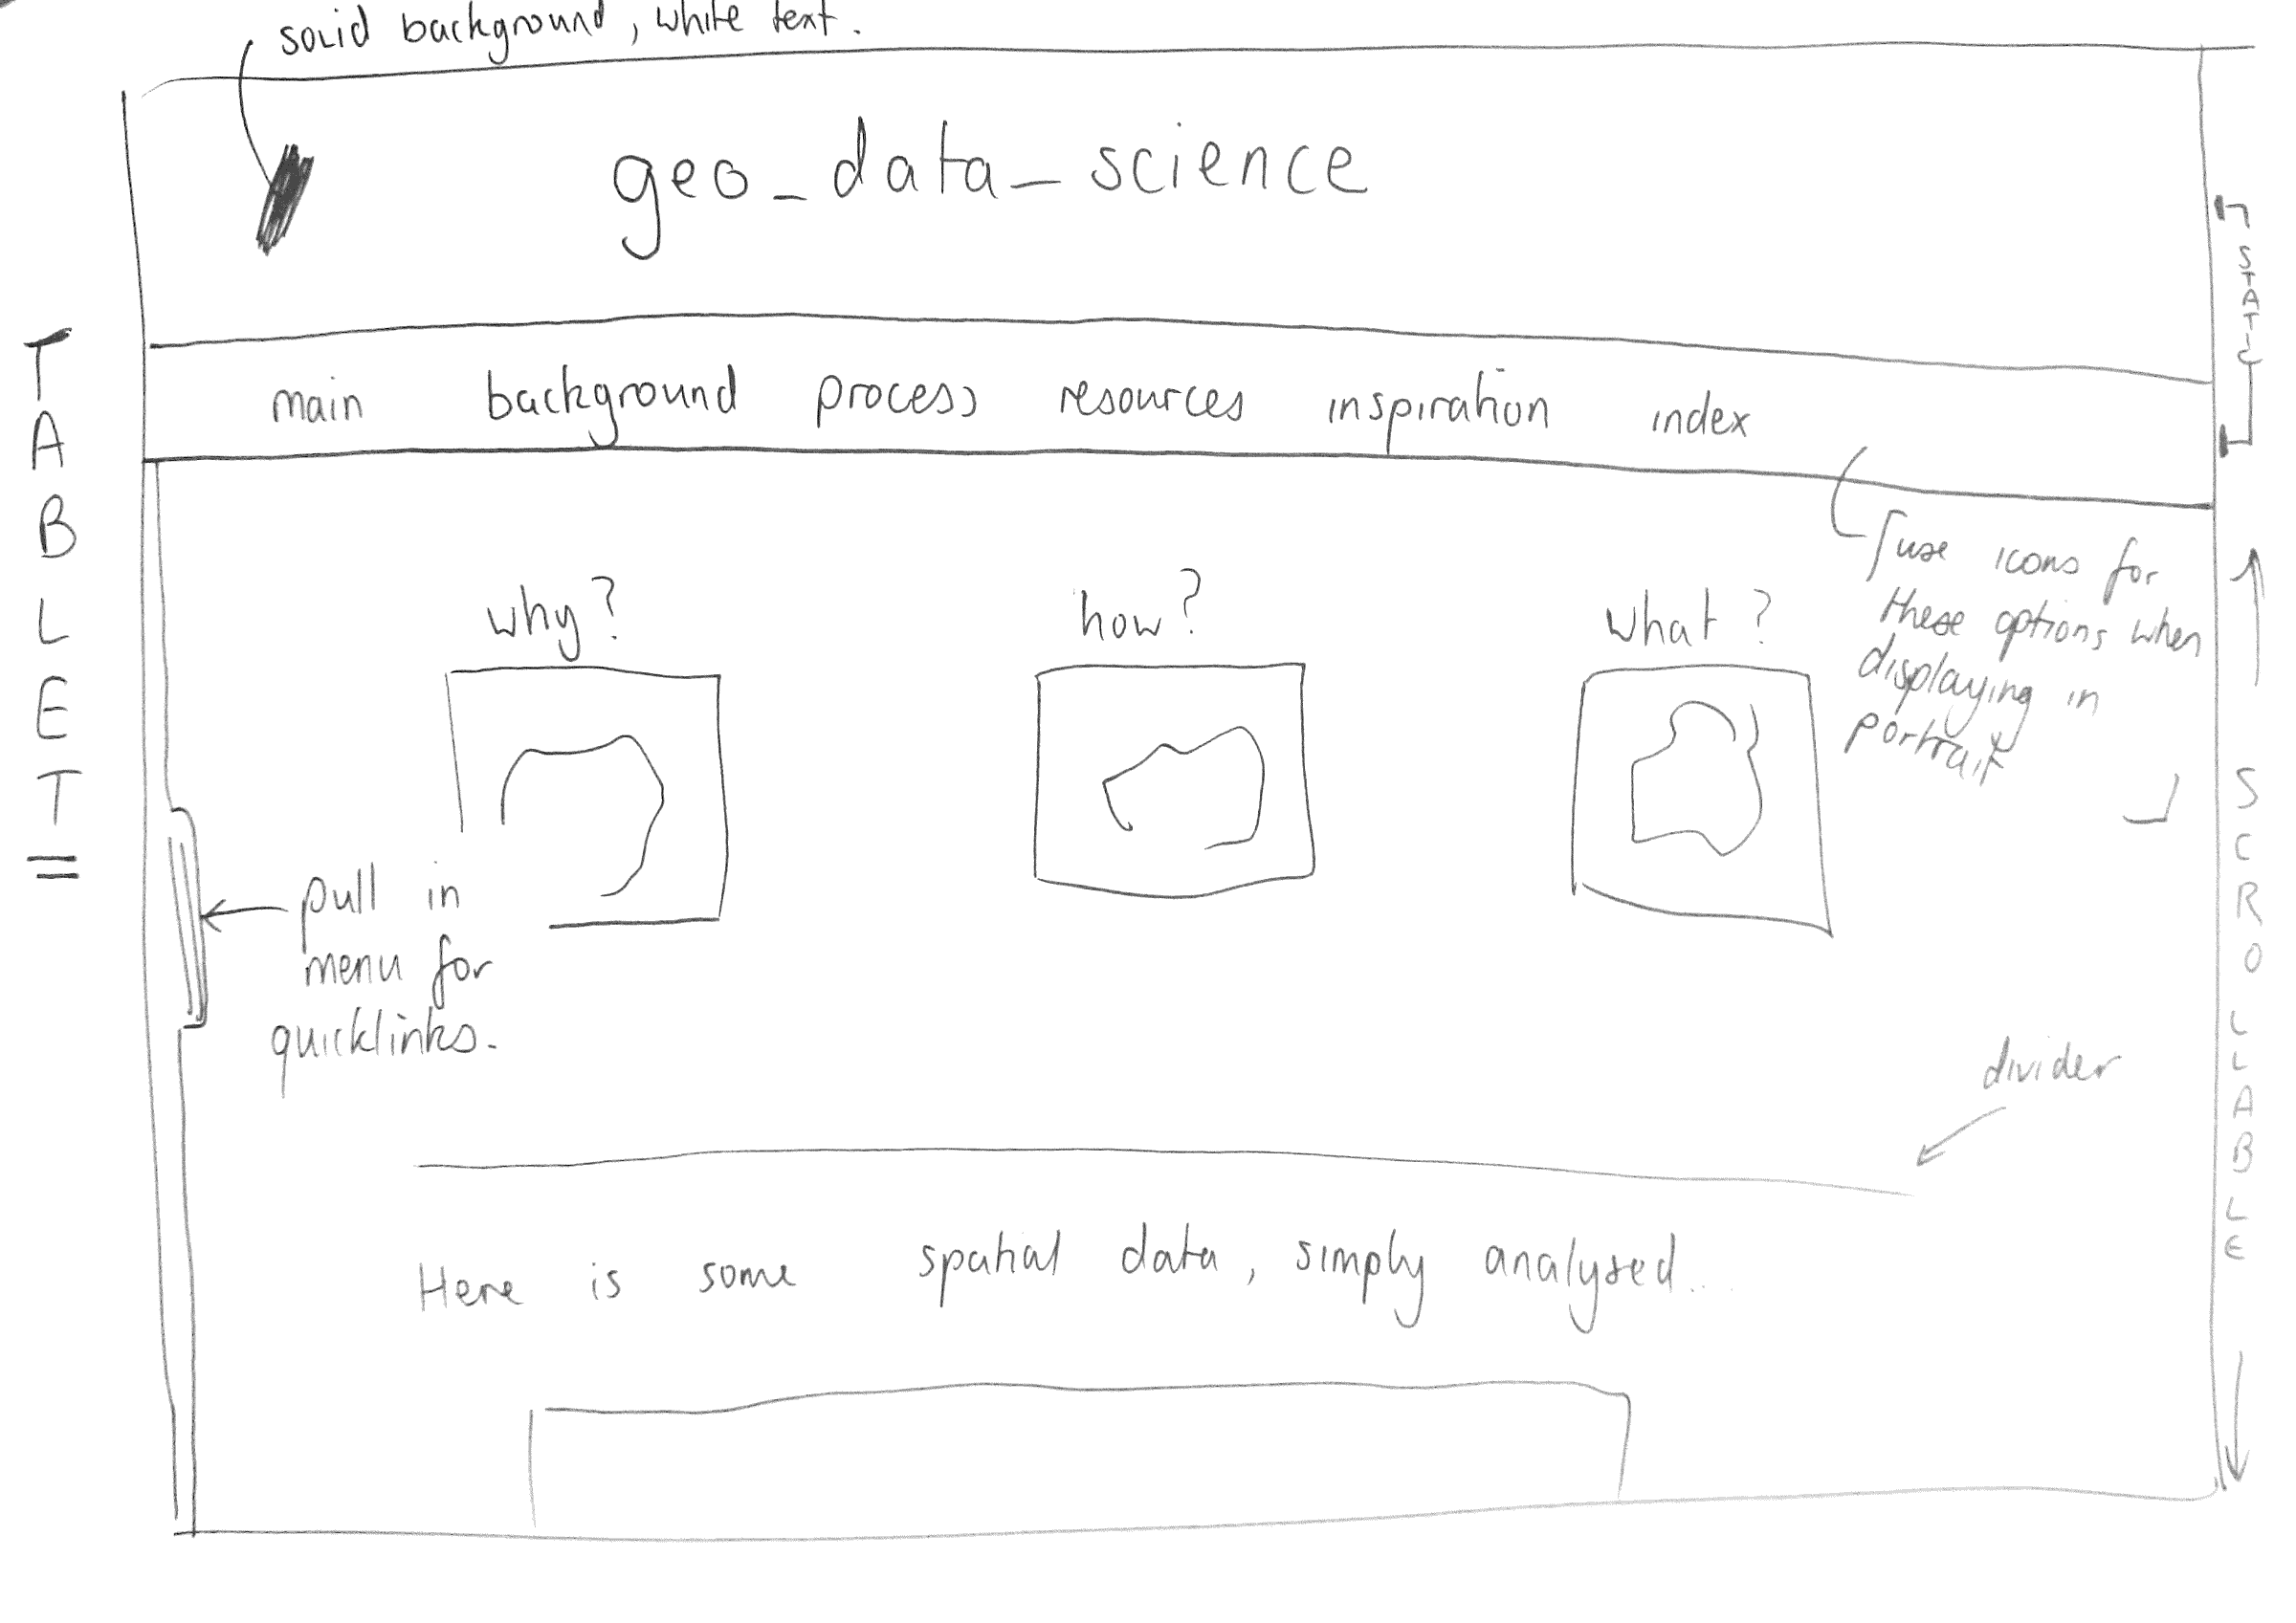 solid background, white text.
TABLET
geo_data_science
STATIC
main background process resources inspiration index
[use icons for
these options when
displaying in
portrait
]
why? how? what?
SCROLLABLE
pull in
menu for
quicklinks.
divider
Here is some spatial data, simply analysed...